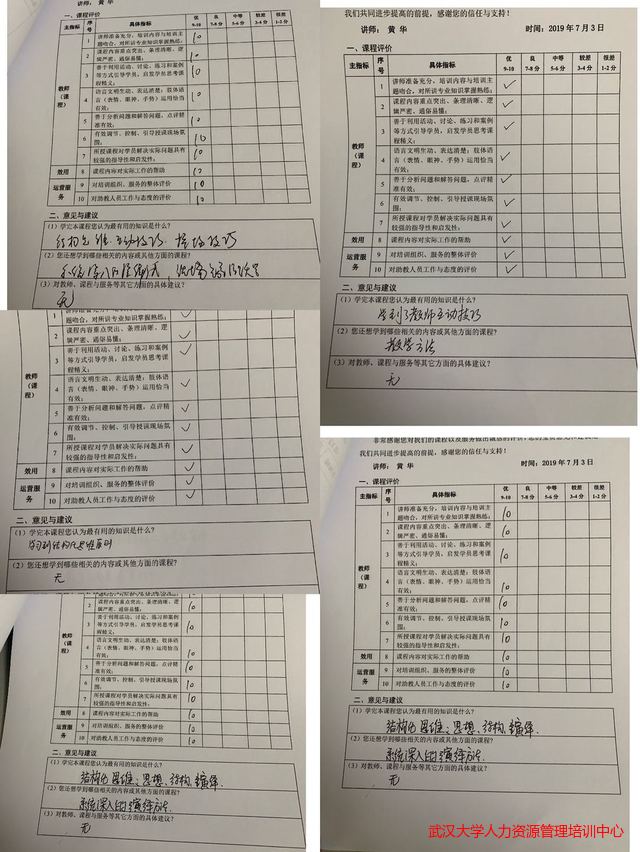 讲师：黄 华
一、课程评价
主指标 具体指标 优 良 中等 较差 很差
9-10 7-8分 5-6分 3-4分 1-2分
教师（课程）
1 讲师准备充分，培训内容与培训主题吻合，对所讲专业知识掌握熟练； 10
2 课程内容重点突出、条理清晰、逻辑严密、通俗易懂； 10
3 善于利用活动、讨论、练习和案例等方式引导学员，启发学员思考课程精义； 10
4 语言文明生动、表达清楚；肢体语言（表情、眼神、手势）运用恰当有效； 10
5 善于分析问题和解答问题，点评精准有效； 10
6 有效调节、控制、引导授课现场氛围； 10
7 所授课程对学员解决实际问题具有较强的指导性和启发性； 10
效用 8 课程内容对实际工作的帮助 10
运营服务 9 对培训组织、服务的整体评价 10
10 对助教人员工作与态度的评价 10
二、意见与建议
(1) 学完本课程您认为最有用的知识是什么？
(2) 您还想学到哪些相关的内容或其他方面的课程？
(3) 对教师、课程与服务等其它方面的具体建议？
无
我们共同进步提高的前提，感谢您的信任与支持！
讲师：黄 华 时间：2019 年 7 月 3 日
一、课程评价
主指标 序号 具体指标 优 良 中等 较差 很差
9-10 7-8分 5-6分 3-4分 1-2分
教师（课程）
1 讲师准备充分，培训内容与培训主题吻合，对所讲专业知识掌握熟练； ✓
2 课程内容重点突出、条理清晰、逻辑严密、通俗易懂； ✓
3 善于利用活动、讨论、练习和案例等方式引导学员，启发学员思考课程精义； ✓
4 语言文明生动、表达清楚；肢体语言（表情、眼神、手势）运用恰当有效； ✓
5 善于分析问题和解答问题，点评精准有效； ✓
6 有效调节、控制、引导授课现场氛围； ✓
7 所授课程对学员解决实际问题具有较强的指导性和启发性； ✓
效用 8 课程内容对实际工作的帮助 ✓
运营服务 9 对培训组织、服务的整体评价 ✓
10 对助教人员工作与态度的评价 ✓
二、意见与建议
(1) 学完本课程您认为最有用的知识是什么？
学到了教师互动技巧
(2) 您还想学到哪些相关的内容或其他方面的课程？
教学方法
(3) 对教师、课程与服务等其它方面的具体建议？
无
教师（课程）
2 课程内容重点突出、条理清晰、逻辑严密、通俗易懂； ✓
3 善于利用活动、讨论、练习和案例等方式引导学员，启发学员思考课程精义； ✓
4 语言文明生动、表达清楚；肢体语言（表情、眼神、手势）运用恰当有效； ✓
5 善于分析问题和解答问题，点评精准有效； ✓
6 有效调节、控制、引导授课现场氛围； ✓
7 所授课程对学员解决实际问题具有较强的指导性和启发性； ✓
效用 8 课程内容对实际工作的帮助 ✓
运营服务 9 对培训组织、服务的整体评价 ✓
10 对助教人员工作与态度的评价 ✓
二、意见与建议
(1) 学完本课程您认为最有用的知识是什么？
(2) 您还想学到哪些相关的内容或其他方面的课程？
无
我们共同进步提高的前提，感谢您的信任与支持！
讲师：黄 华 时间：2019 年 7 月 3 日
一、课程评价
主指标 序号 具体指标 优 良 中等 较差 很差
9-10 7-8分 5-6分 3-4分 1-2分
教师（课程）
1 讲师准备充分，培训内容与培训主题吻合，对所讲专业知识掌握熟练； 10
2 课程内容重点突出、条理清晰、逻辑严密、通俗易懂； 10
3 善于利用活动、讨论、练习和案例等方式引导学员，启发学员思考课程精义； 10
4 语言文明生动、表达清楚；肢体语言（表情、眼神、手势）运用恰当有效； 10
5 善于分析问题和解答问题，点评精准有效； 10
6 有效调节、控制、引导授课现场氛围； 10
7 所授课程对学员解决实际问题具有较强的指导性和启发性； 10
效用 8 课程内容对实际工作的帮助 10
运营服务 9 对培训组织、服务的整体评价 10
10 对助教人员工作与态度的评价 10
二、意见与建议
(1) 学完本课程您认为最有用的知识是什么？
结构化思维、思想、结构、演绎
(2) 您还想学到哪些相关的内容或其他方面的课程？
系统深入的演绎方法.
(3) 对教师、课程与服务等其它方面的具体建议？
无
教师（课程）
2 课程内容重点突出、条理清晰、逻辑严密、通俗易懂； 10
3 善于利用活动、讨论、练习和案例等方式引导学员，启发学员思考课程精义； 10
4 语言文明生动、表达清楚；肢体语言（表情、眼神、手势）运用恰当有效； 10
5 善于分析问题和解答问题，点评精准有效； 10
6 有效调节、控制、引导授课现场氛围； 10
7 所授课程对学员解决实际问题具有较强的指导性和启发性； 10
效用 8 课程内容对实际工作的帮助 10
运营服务 9 对培训组织、服务的整体评价 10
10 对助教人员工作与态度的评价 10
二、意见与建议
(1) 学完本课程您认为最有用的知识是什么？
结构化思维、思想、结构、演绎
(2) 您还想学到哪些相关的内容或其他方面的课程？
系统深入的演绎方法.
(3) 对教师、课程与服务等其它方面的具体建议？
无
武汉大学人力资源管理培训中心